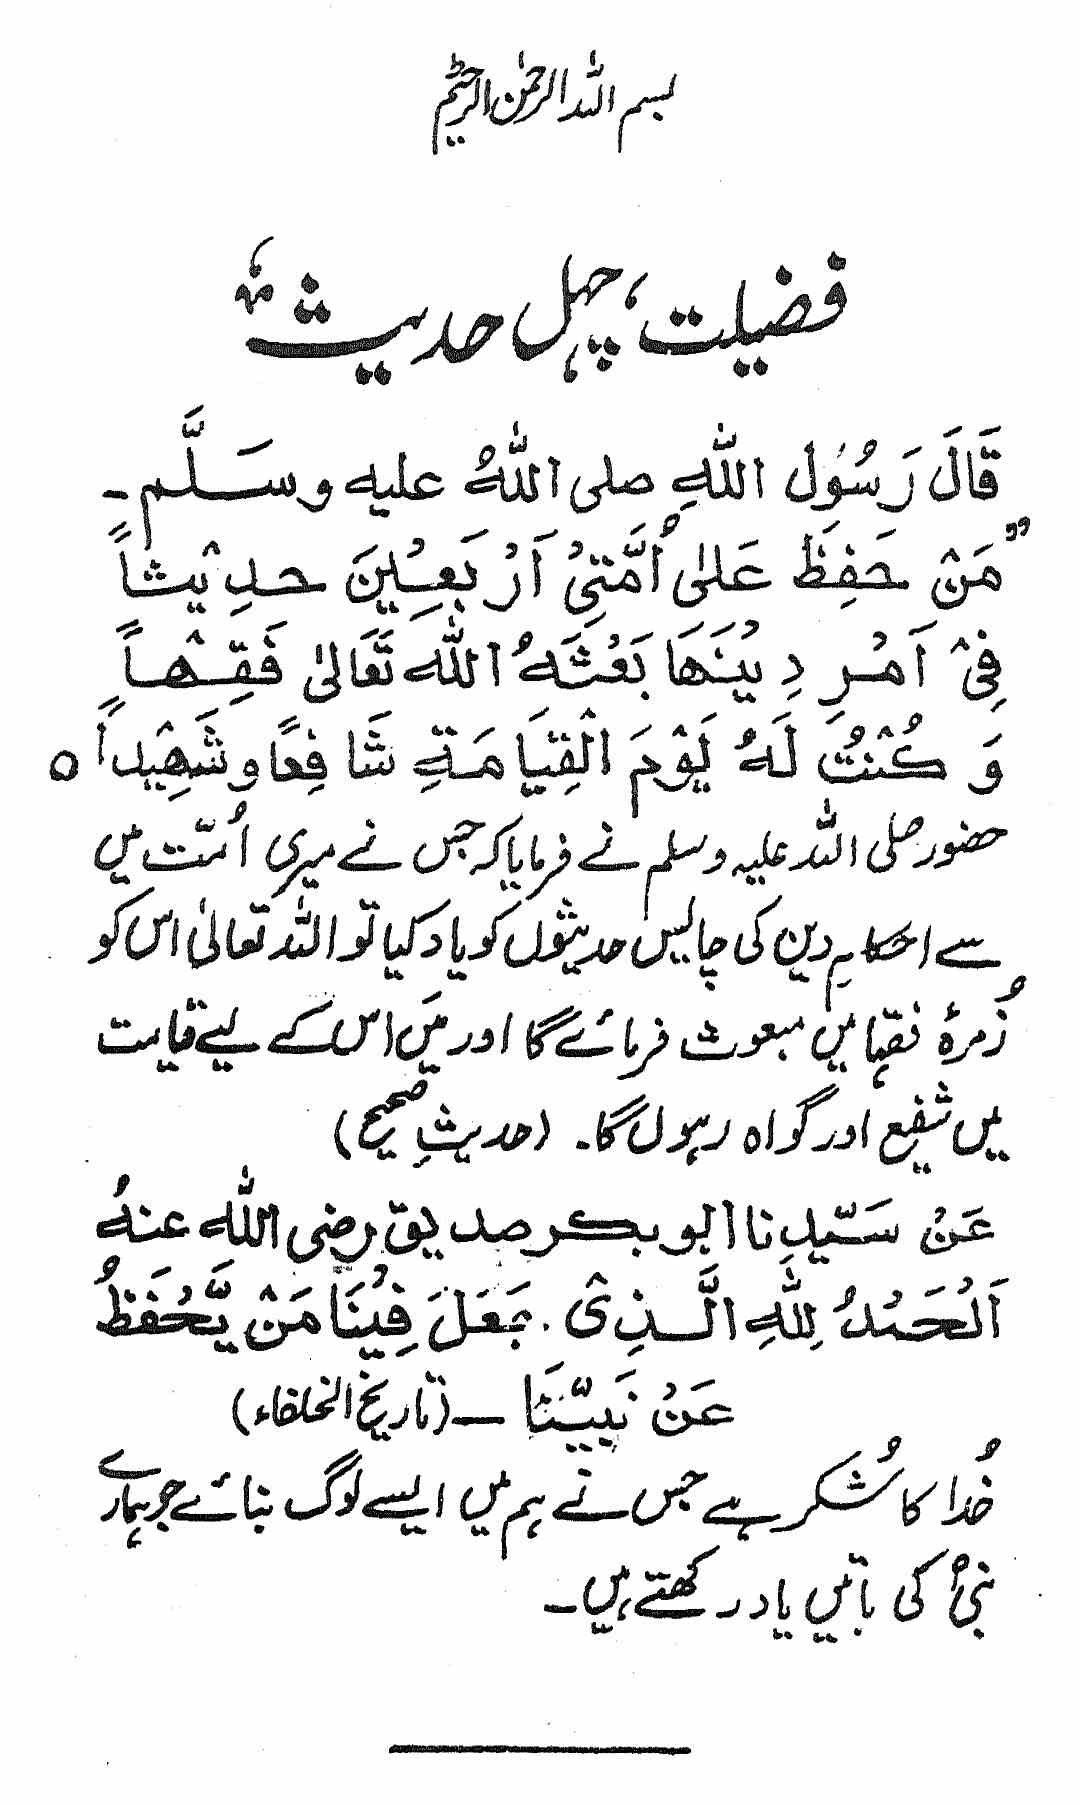 بسم اللہ الرحمٰن الرحیم
فضیلت، چہل حدیث
قَالَ رَسُوْل اللّٰهِ صلی اللّٰهُ علیه وسَلَّم ـ
”مَنْ حَفِظَ عَلٰی اُمَّتِیْ اَرْبَعِیْنَ حدِیْثاً
فِیْ اَمْرِ دِیْنَهَا بَعْثَهُ اللّٰه تَعَالیٰ فَقِیْهاً
وَ کُنْتُ لَهُ یَوْمَ الْقِیَامَةِ شَافِعًا وشَهِیْداً ٥
حضور صلی اللہ علیہ وسلم نے فرمایا کہ جس نے میری اُمّت میں
سے احکامِ دین کی چالیس حدیثوں کو یاد کیا تو اللہ تعالیٰ اس کو
زُمرۂ فقہا میں مبعوث فرمائے گا اور میَں اس کے لیے قیامت
میں شفیع اور گواہ رہوں گا۔ (حدیثِ صحیح)
عَنْ سَیّدِنا ابو بکر صدیق رضی اللّٰه عنهُ
اَلْحَمْدُ لِلّٰهِ الَّذِیْ جَعَلَ فِیْنَا مَنْ یَّحْفَظُ
عَنْ نَبِیّنَا ــ (تاریخ الخلفاء)
خُدا کا شُکر ہے جس نے ہم میں ایسے لوگ بنائے جو ہمارے
نبیؐ کی باتیں یاد رکھتے ہیں۔